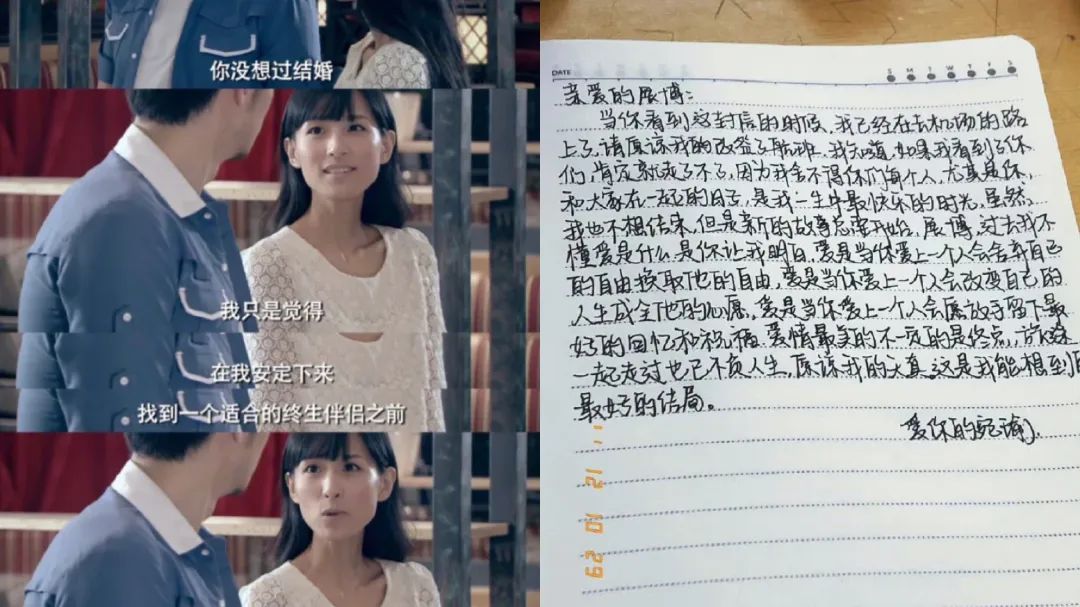 你没想过结婚
我只是觉得
在我安定下来
找到一个适合的终生伴侣之前
DATE
S M T W T F S
亲爱的展博：
当你看到这封信的时候，我已经在去机场的路
上了，请原谅我的改签了航班，我知道，如果我看到了你
们，肯定就走了不了，因为我舍不得你们每个人，尤其是你，
和大家在一起的日子，是我一生中最快乐的时光。虽然，
我也不想结束，但是新的故事总要开始，展博，过去我不
懂爱是什么，是你让我明白，爱是当你爱上一个人会舍弃自己
的自由换取他的自由，爱是当你爱上一个人会改变自己的
人生成全他的心愿，爱是当你爱上一个人会愿放手留下最
好的回忆和祝福，爱情最美的不一定的是终点，旅途
一起走过也已不负人生，原谅我的天真，这是我能想到的
最好的结局。
爱你的宛瑜
' 12 10 29